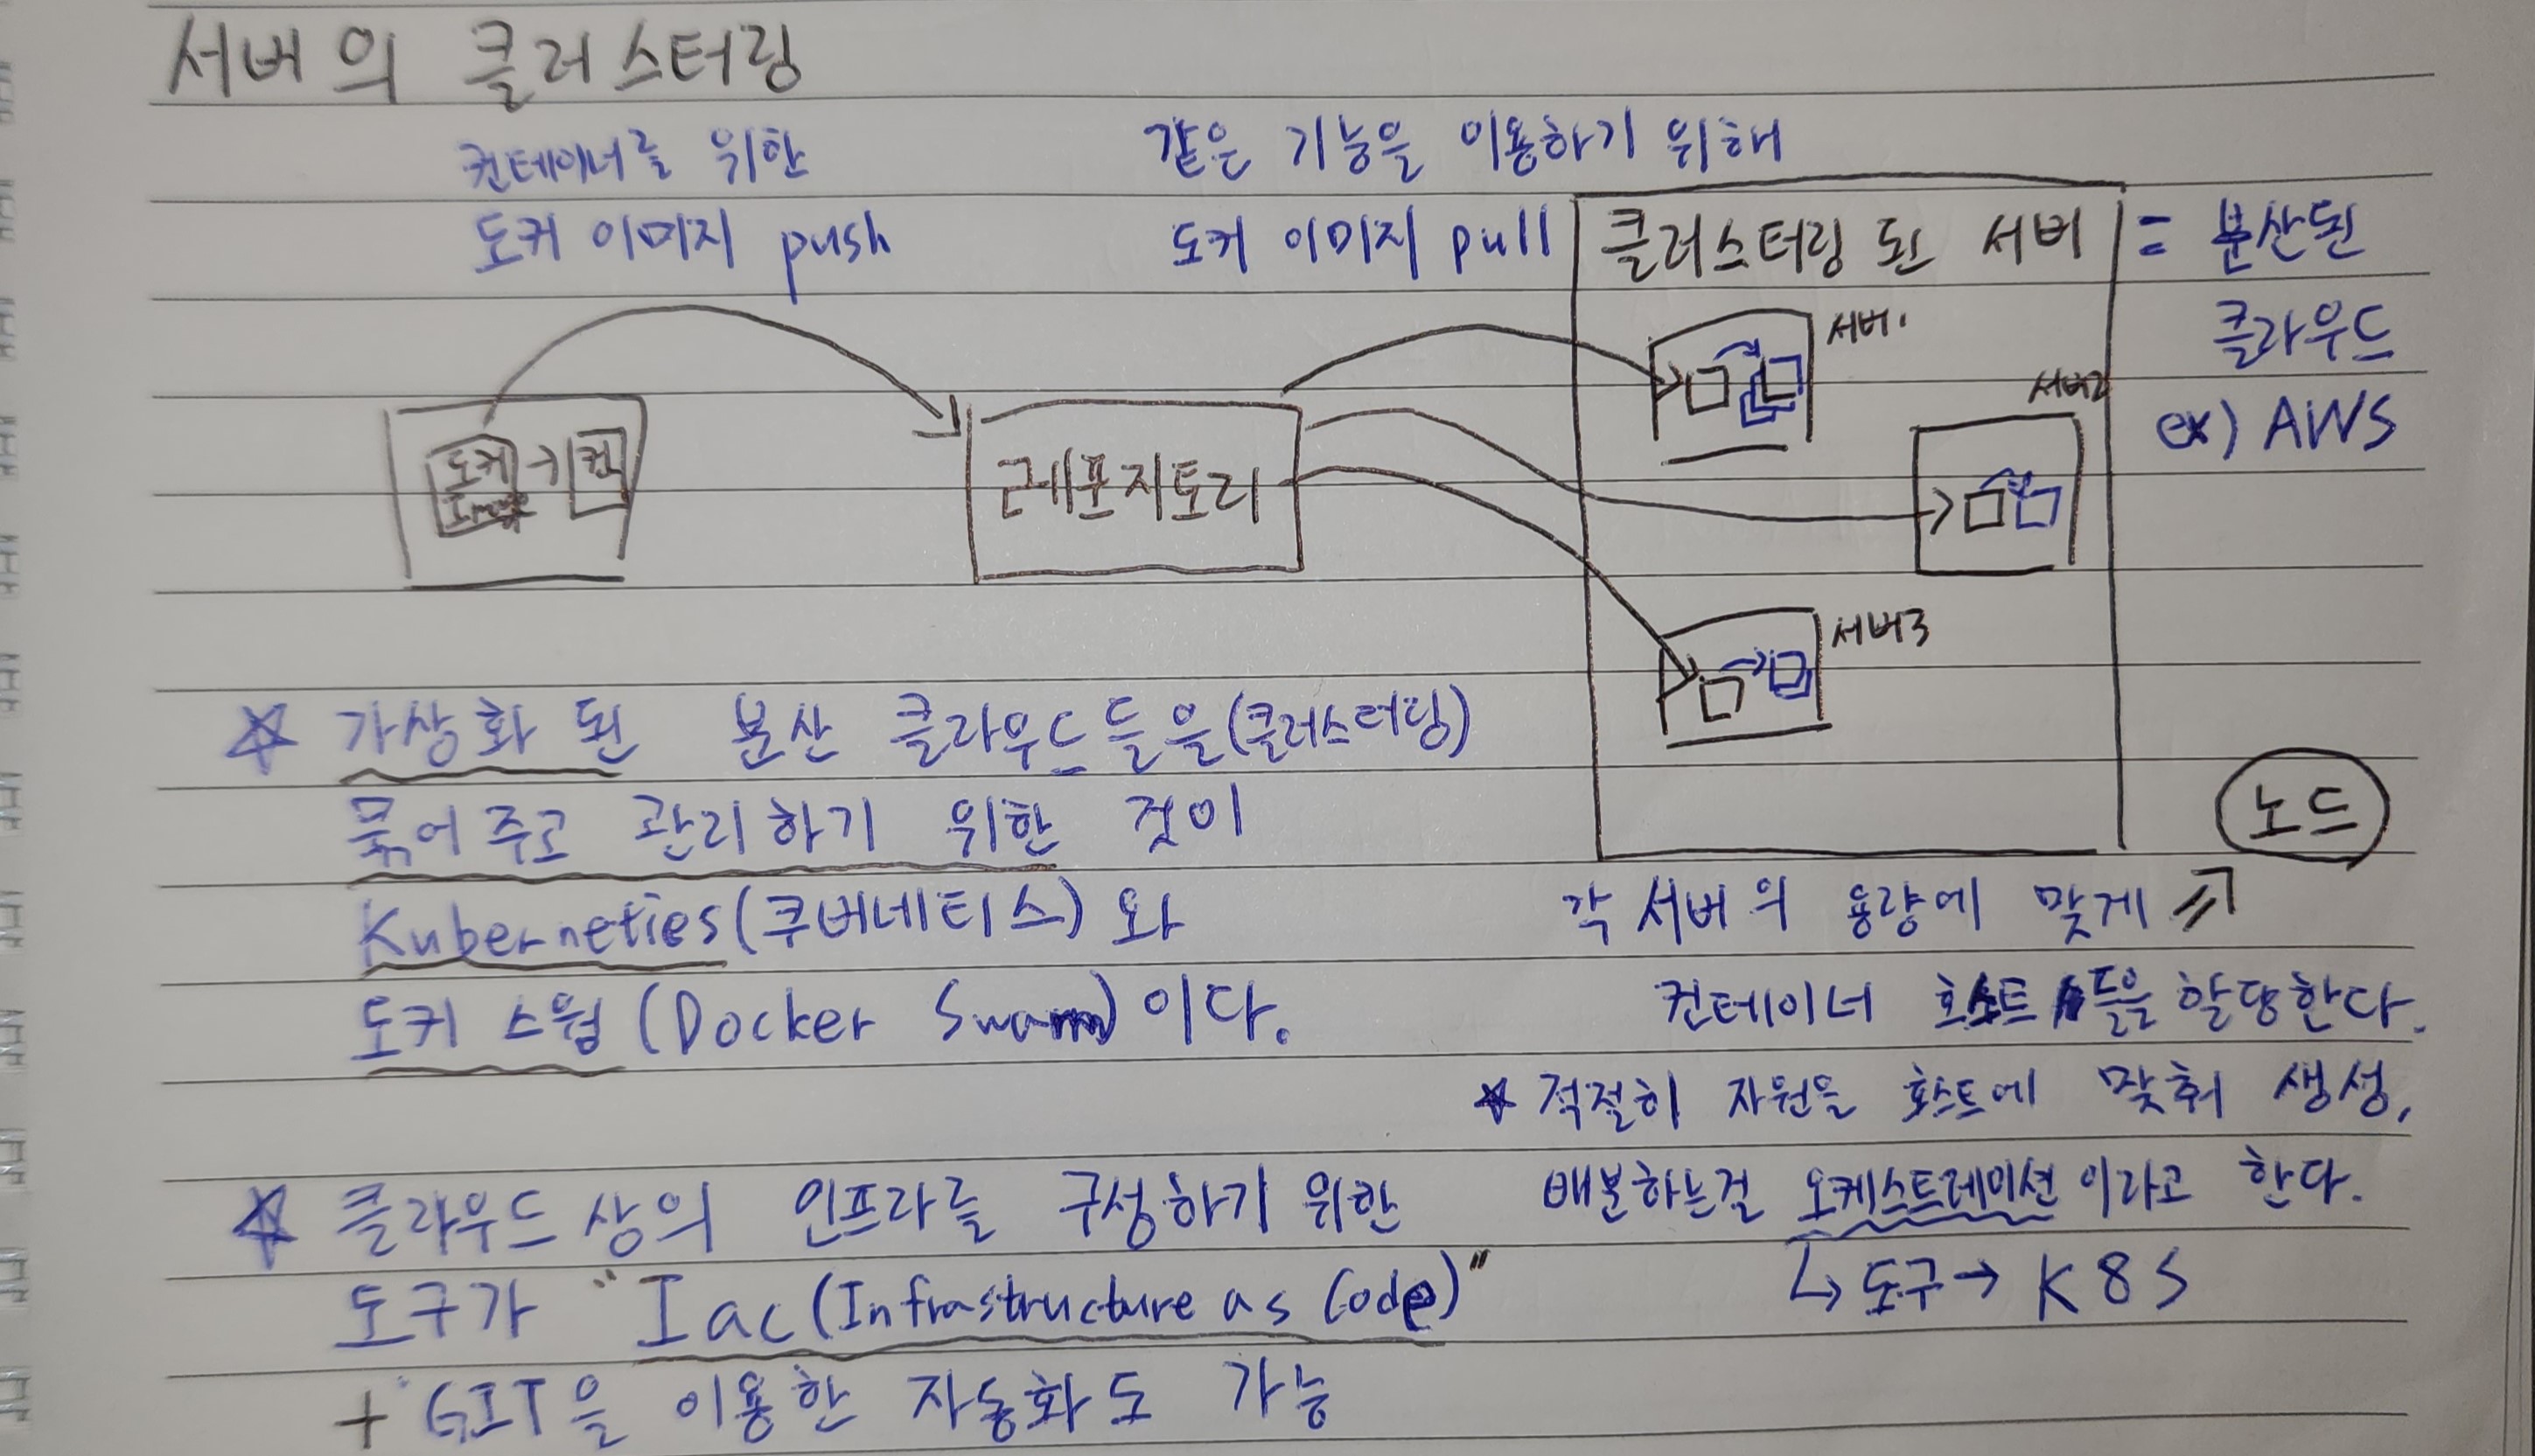 서버의 클러스터링
컨테이너를 위한
도커 이미지 push
같은 기능을 이용하기 위해
도커 이미지 pull
클러스터링 된 서버
= 분산된
클라우드
ex) AWS
도커 → 컨
레포지토리
서버1
서버2
서버3
☆ 가상화 된 분산 클라우드들을(클러스터링)
묶어주고 관리하기 위한 것이
Kuberneties(쿠버네티스)와
도커 스웜(Docker Swarm)이다.
노드
각 서버의 용량에 맞게
컨테이너 호스트들을 할당한다.
☆ 적절히 자원을 호스트에 맞춰 생성,
배분하는걸 오케스트레이션 이라고 한다.
↳ 도구 → K8S
☆ 클라우드 상의 인프라를 구성하기 위한
도구가 "Iac(Infrastructure as Code)"
+ GIT을 이용한 자동화도 가능